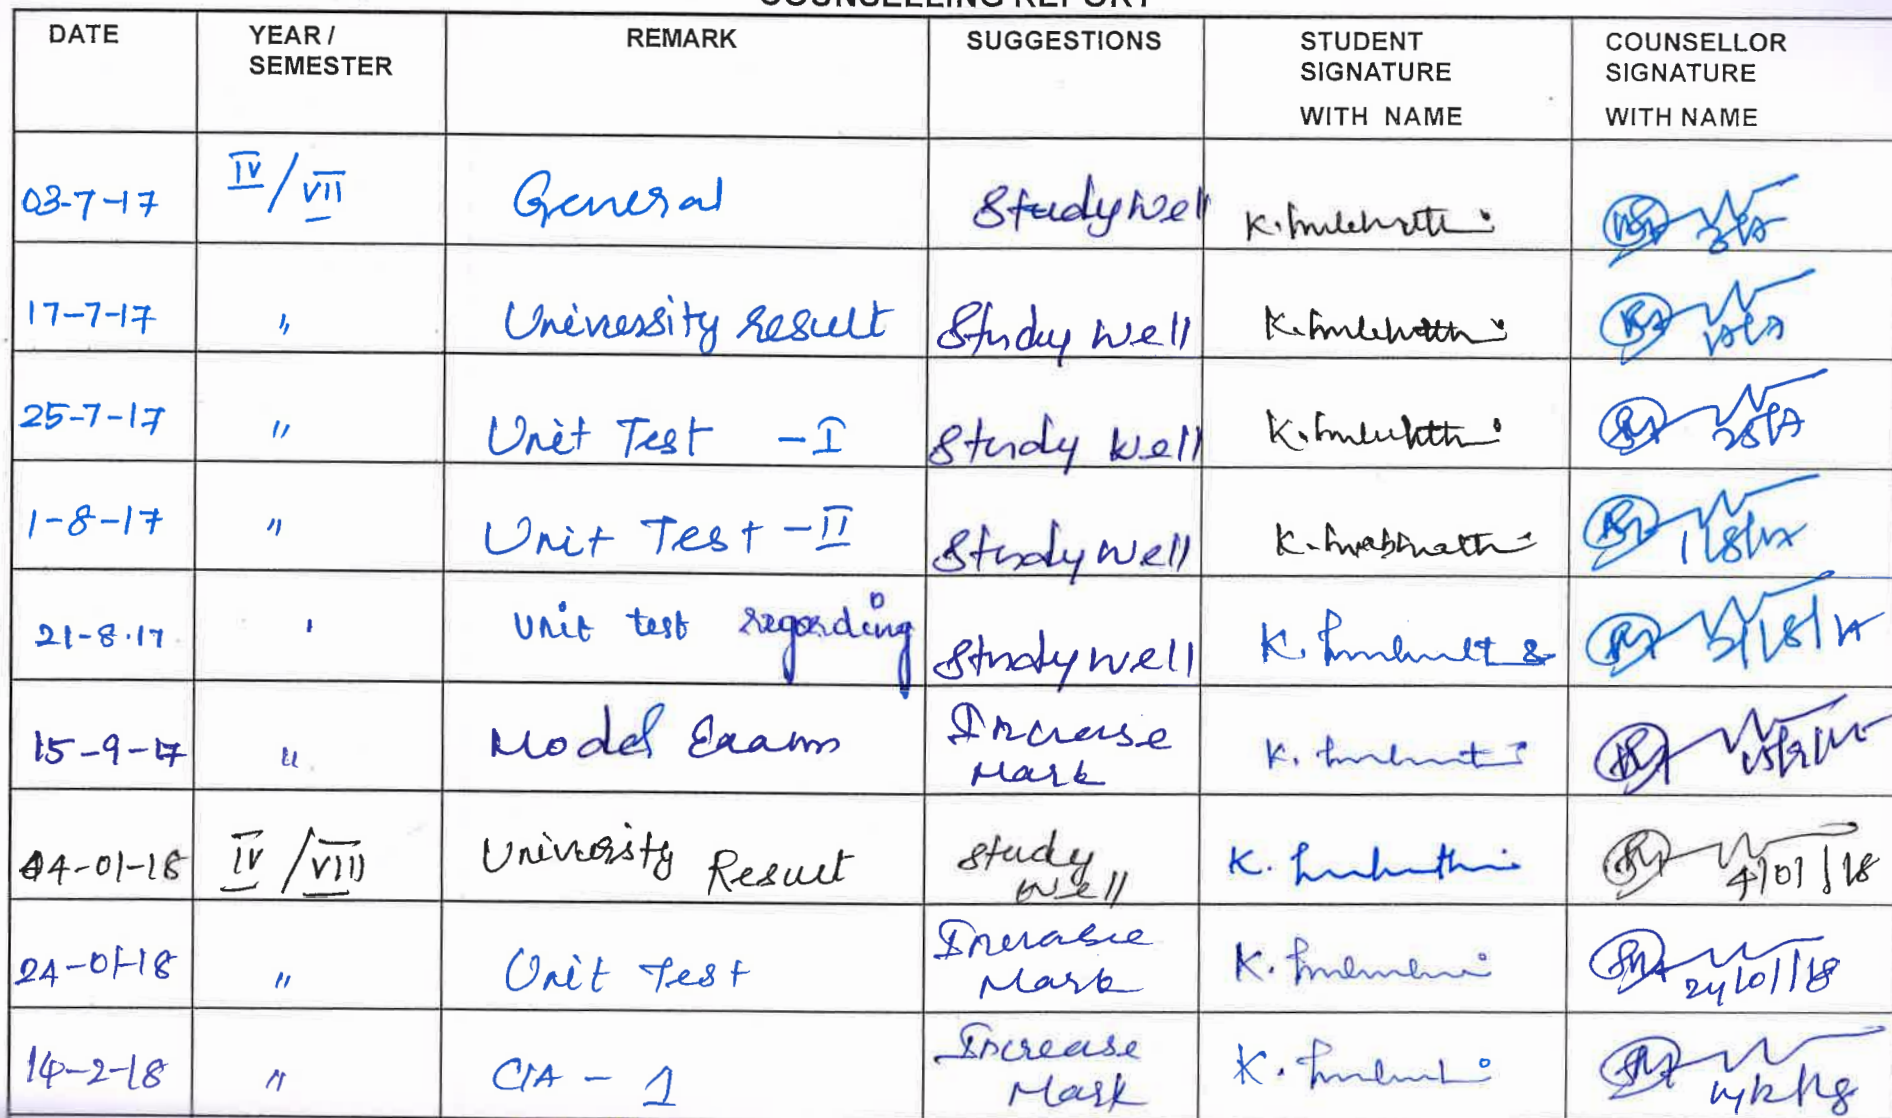 COUNSELLING REPORT
DATE YEAR / SEMESTER REMARK SUGGESTIONS STUDENT SIGNATURE WITH NAME COUNSELLOR SIGNATURE WITH NAME
03-7-17 IV/VII General Study Well K.
17-7-17 " University result Study well K.
25-7-17 " Unit Test - I Study well K.
1-8-17 " Unit Test - II Study well K. 1/8/17
21-8-17 " Unit test regarding Study well K. 21/8/17
15-9-17 " Model Exams Increase Mark K.
04-01-18 IV/VIII University Result study well K. 4/01/18
24-01-18 " Unit Test Increase Mark K. 24/01/18
14-2-18 " CIA - 1 Increase Mark K. 14/2/18